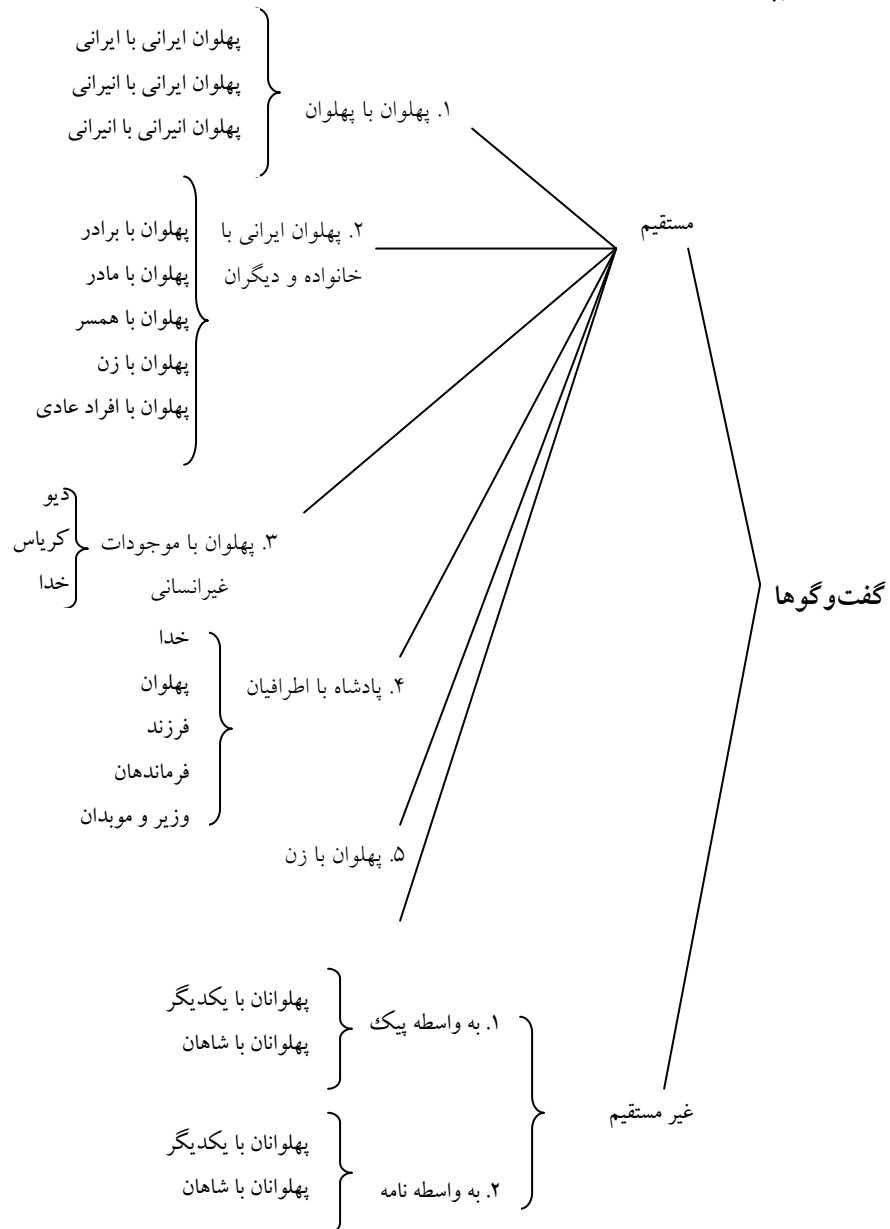 گفت‌وگوها
مستقیم
۱. پهلوان با پهلوان
پهلوان ایرانی با ایرانی
پهلوان ایرانی با انیرانی
پهلوان انیرانی با انیرانی
۲. پهلوان ایرانی با
خانواده و دیگران
پهلوان با برادر
پهلوان با مادر
پهلوان با همسر
پهلوان با زن
پهلوان با افراد عادی
۳. پهلوان با موجودات
غیرانسانی
دیو
کریاس
خدا
۴. پادشاه با اطرافیان
خدا
پهلوان
فرزند
فرماندهان
وزیر و موبدان
۵. پهلوان با زن
غیر مستقیم
۱. به واسطه پیک
پهلوانان با یکدیگر
پهلوانان با شاهان
۲. به واسطه نامه
پهلوانان با یکدیگر
پهلوانان با شاهان